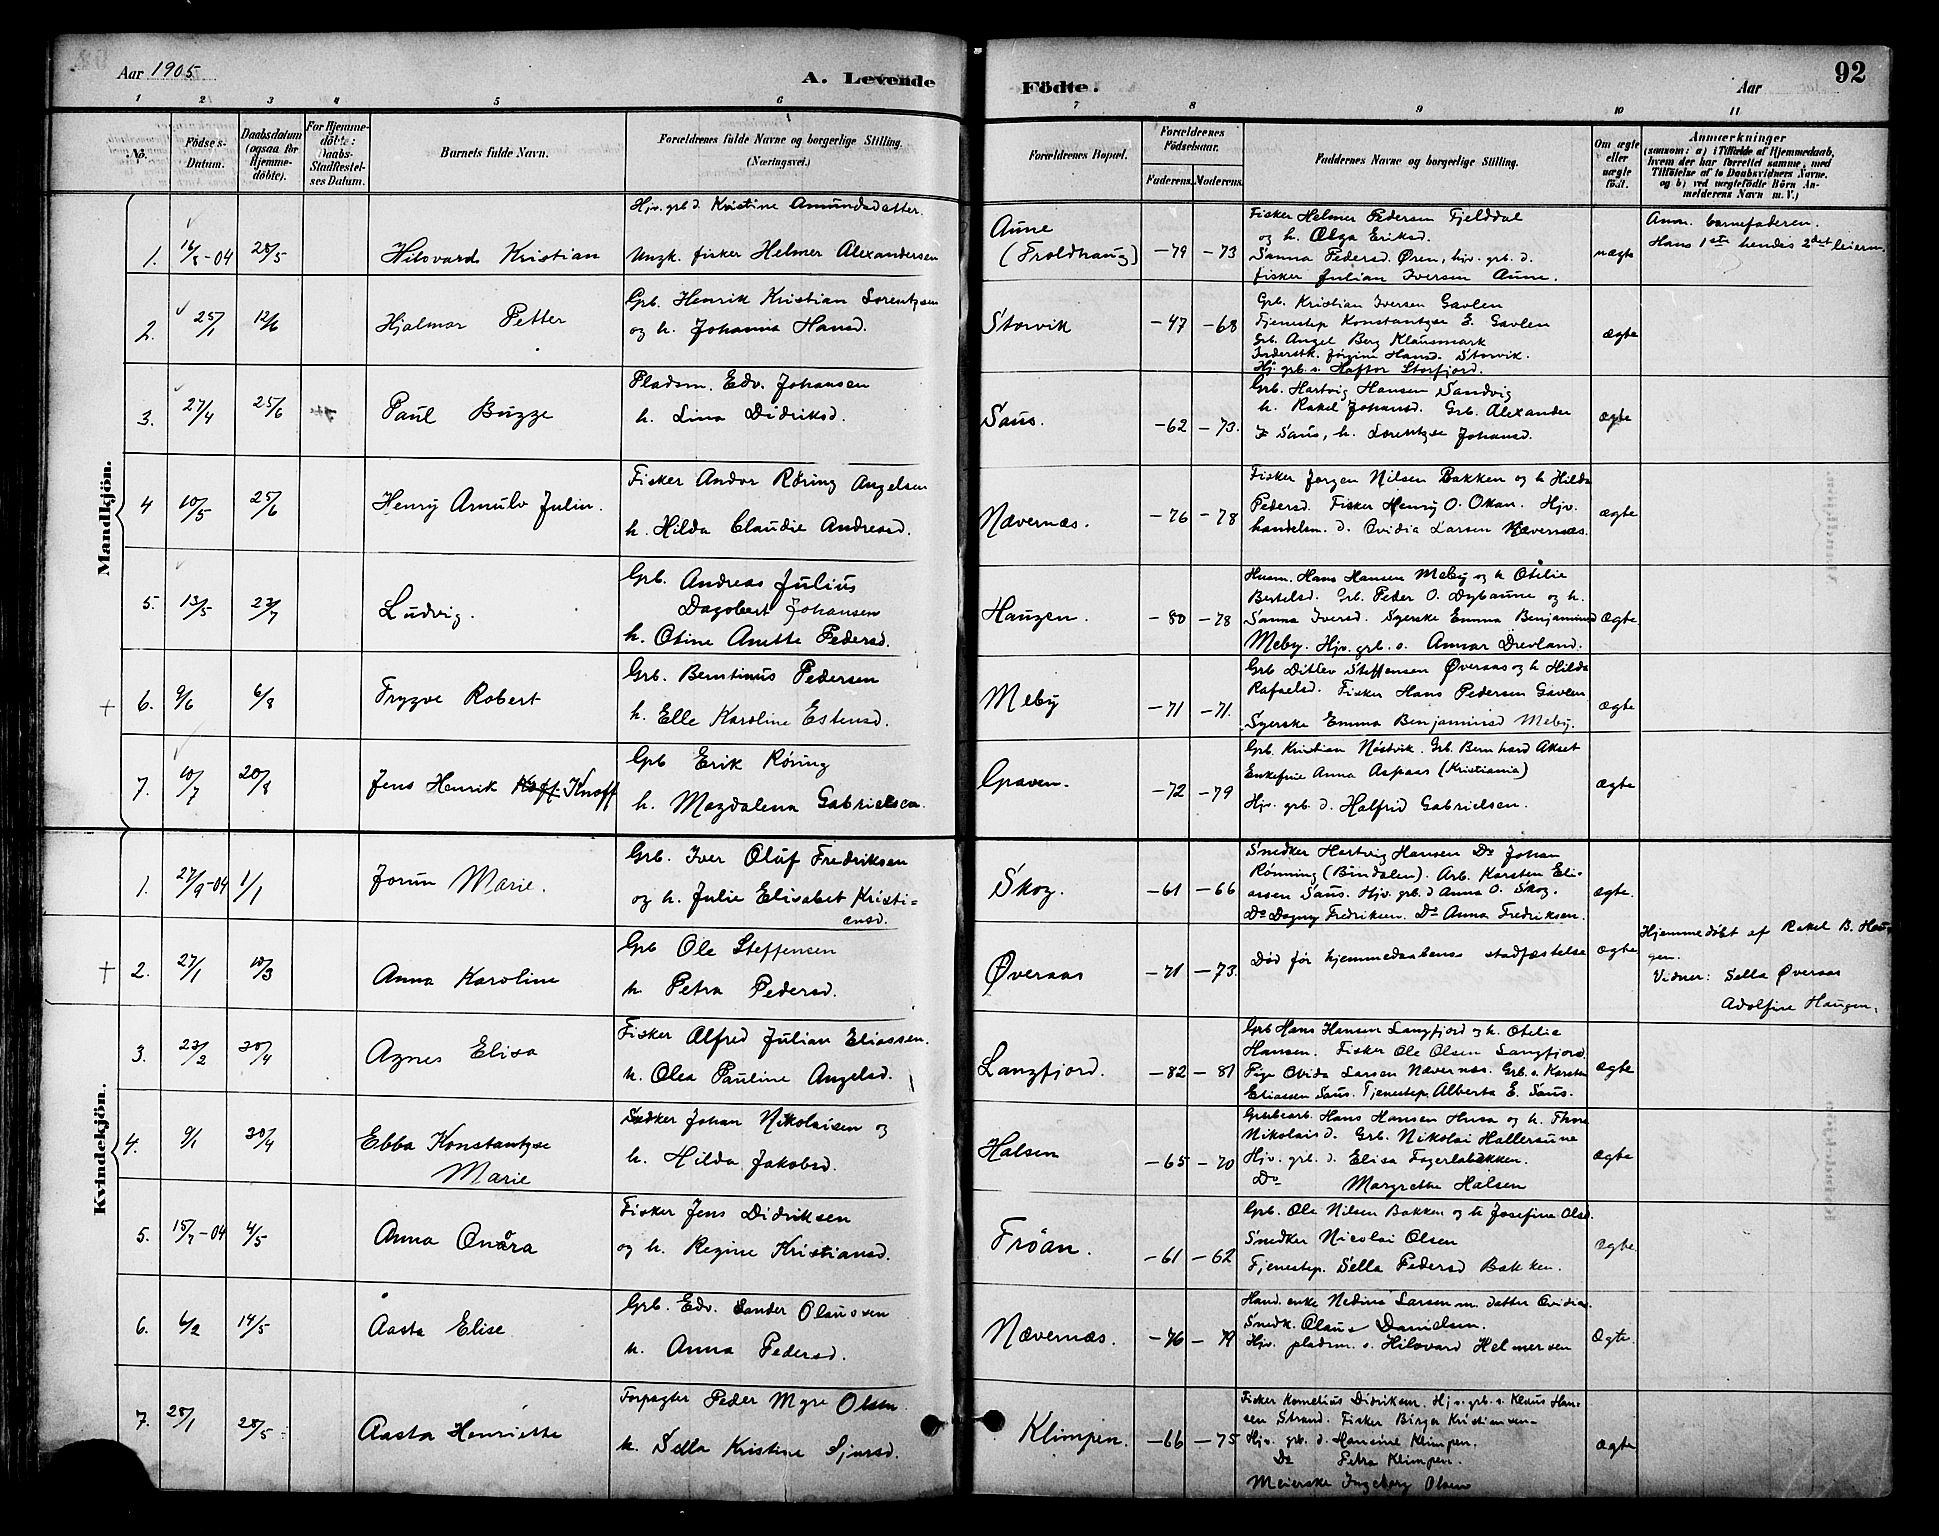 Aar 1905
A. Levende
Fødte.
Aar
92
1 2 3 4 5 6 7 8 9 10 11
No.
Fødsels-Datum.
Daabsdatum (ogsaa for Hjemme-døbte).
For Hjemme-døbte: Daabs-Stadfestel-ses Datum.
Barnets fulde Navn.
Forældrenes fulde Navne og borgerlige Stilling. (Næringsvei.)
Forældrenes Bopæl.
Forældrenes Fødselsaar.
Faderens. Moderens.
Faddernes Navne og borgerlige Stilling.
Om ægte eller uægte født.
Anmærkninger
(saasom: a) i Tilfælde af Hjemmedaab, hvem der har forrettet samme, med Tilføielse af to Daabsvidners Navne, og b) ved uægtefødte Børn An-melderens Navn m. V.)
Mandkjøn.
1. 16/8-04 28/5 Hilsvard Kristian
Hjv. grb d. Kristine Amundsdatter.
Ungk. fisker Helmer Alexandersen
Aune
(Troldhaug) -79 -73
Fisker Helmer Pedersen Fjelddal
og h. Olga Eriksd.
Sanna Pedersd. Øren, hjv. grb. d.
fisker Julian Iversen Aune.
uægte
Anm. barnefaderen.
Hans 1ste hendes 2det leierm.
2. 25/1 12/6 Hjalmar Petter
Grb. Henrik Kristian Lorentzen
og h. Johanna Hansd.
Storvik -47 -68
Grb. Kristian Iversen Gavlen
Tjenestep Konstantyse E. Gavlen
Grb. Angel Berg Klausmark
Inderstk. Jørgine Hansd. Storvik.
Hj. grb. s. Haftor Storfjord.
ægte
3. 27/4 25/6 Paul Bugge
Pladsm. Edv. Johansen
h. Lina Didriksd.
Saus. -62 -73.
Grb. Hartvig Hansen Sandvig
h. Rakel Johansd. Grb. Alexander
J. Saus, h. Lorentyse Johansd.
ægte
4 10/5 25/6 Henry Arnulv Julin.
Fisker Andor Røring Angelsen
h. Hilda Claudie Andreasd.
Nævernæs. -76 -78
Fisker Jørgen Nilsen Bakken og h Hilda
Pedersd. Fisker Henry O. Okan. Hjv.
handelsm. d. Ovidia Larsen Nævernæs.
ægte
5. 13/5 23/7 Ludvig.
Grb. Andreas Julius
Dagobert Johansen
h. Otine Anette Pedersd.
Haugen. -80 -78
Husm. Hans Hansen Meby og h Otelie
Bertelsd. Grb. Peder O. Dybaune og h.
Sanna Iversd. Syerske Emma Benjaminsd
Meby. Hjv. grb. s. Annar Drevland.
ægte
+ 6. 9/6 6/8 Trygve Robert
Grb. Berntinus Pedersen
h. Elle Karoline Estensd.
Meby -71 -71.
Grb Ditlev Steffensen Øveraas og h Hilda
Rafaelsd. Fisker Hans Pedersen Gavlen
Syerske Emma Benjaminsd Meby.
ægte
7. 10/7 20/8 Jens Henrik Knoff
Grb Erik Røring
h. Magdalena Gabrielsen.
Graven. -72 -79
Grb. Kristian Nøstvik. Grb. Bernhard Akset
Enkefrue Anna Aspaas (Kristiania)
Hjv. grb. d. Halfrid Gabrielsen.
ægte
Kvindekjøn.
1. 27/9-04 1/1 Jorun Marie.
Grb. Iver Oluf Fredriksen
og h. Julie Elisabet Kristi=
ansd.
Skog. -61 -66
Snedker Hartvig Hansen Do Johan
Rønning (Bindalen). Arb. Karsten Eli-
assen Saus. Hjv. grb. d Anna O. Skog.
Do Dagny Fredriksen. Do Anna Fredriksen.
ægte.
+ 2. 27/1 10/3 Anna Karoline
Grb Ole Steffensen
h. Petra Pedersd.
Øveraas -71 -73.
Død før hjemmedaabens stadfæstelse
ægte
Hjemmedøbt af Rakel B. Hau-
gen.
Vidner: Sella Øveraas
Adolfine Haugen.
3. 23/2 30/4 Agnes Elisa
Fisker Alfred Julian Eliassen.
h. Olea Pauline Angelsd.
Langfjord. -82 -81
Grb Hans Hansen Langfjord og h. Otelia
Hansen. Fisker Ole Olsen Langfjord.
Pige Ovida Larsen Nævernæs. Grb. s. Karsten
Eliassen Saus. Tjenestep. Alberta E. Saus.
ægte
4. 9/1 30/4 Ebba Konstantyse
Marie
Snedker Johan Nikolaisen og
h. Hilda Jakobsd.
Halsen -65 -70
Grubearb. Hans Hansen Husa og h. Thora
Nikolaisd. Grb. Nikolai Halleraune
Hjv. grb. d. Elisa Fagerlabækken.
Do Margrethe Halsen
ægte
5. 15/7-04 4/5 Anna Onåra
Fisker Jens Didriksen
og h. Regine Kristiansd.
Frøan. -61 -62
Grb. Ole Nilsen Bakken og h Josefine Olsd.
Snedker Nicolai Olsen
Tjenestep. Sella Pedersd Bakken.
Ægte
6. 6/2 14/5 Aasta Elise.
Grb. Edv. Sander Olaussen
h. Anna Pedersd.
Nævernæs. -76 -79
Hand. enke Nedine Larsen m. datter Ovidia.
Snedk. Olaus Danielsen.
Hjv. pladsm. s. Hilsvard Helmersen
Ægte.
7. 28/1 28/5 Aasta Henriette
Forpagter Peder Myre Olsen.
h. Sella Kristine Sjursd.
Klimpen. -66 -75
Fisker Kornelius Didriksen. Hjv. grb. s. Klaus Han-
sen Strand. Fisker Birger Kristiansen
Hjv. grb. d. Hansine Klimpen.
Do Petra Klimpen.
Meierske Ingeborg Olsen
ægte